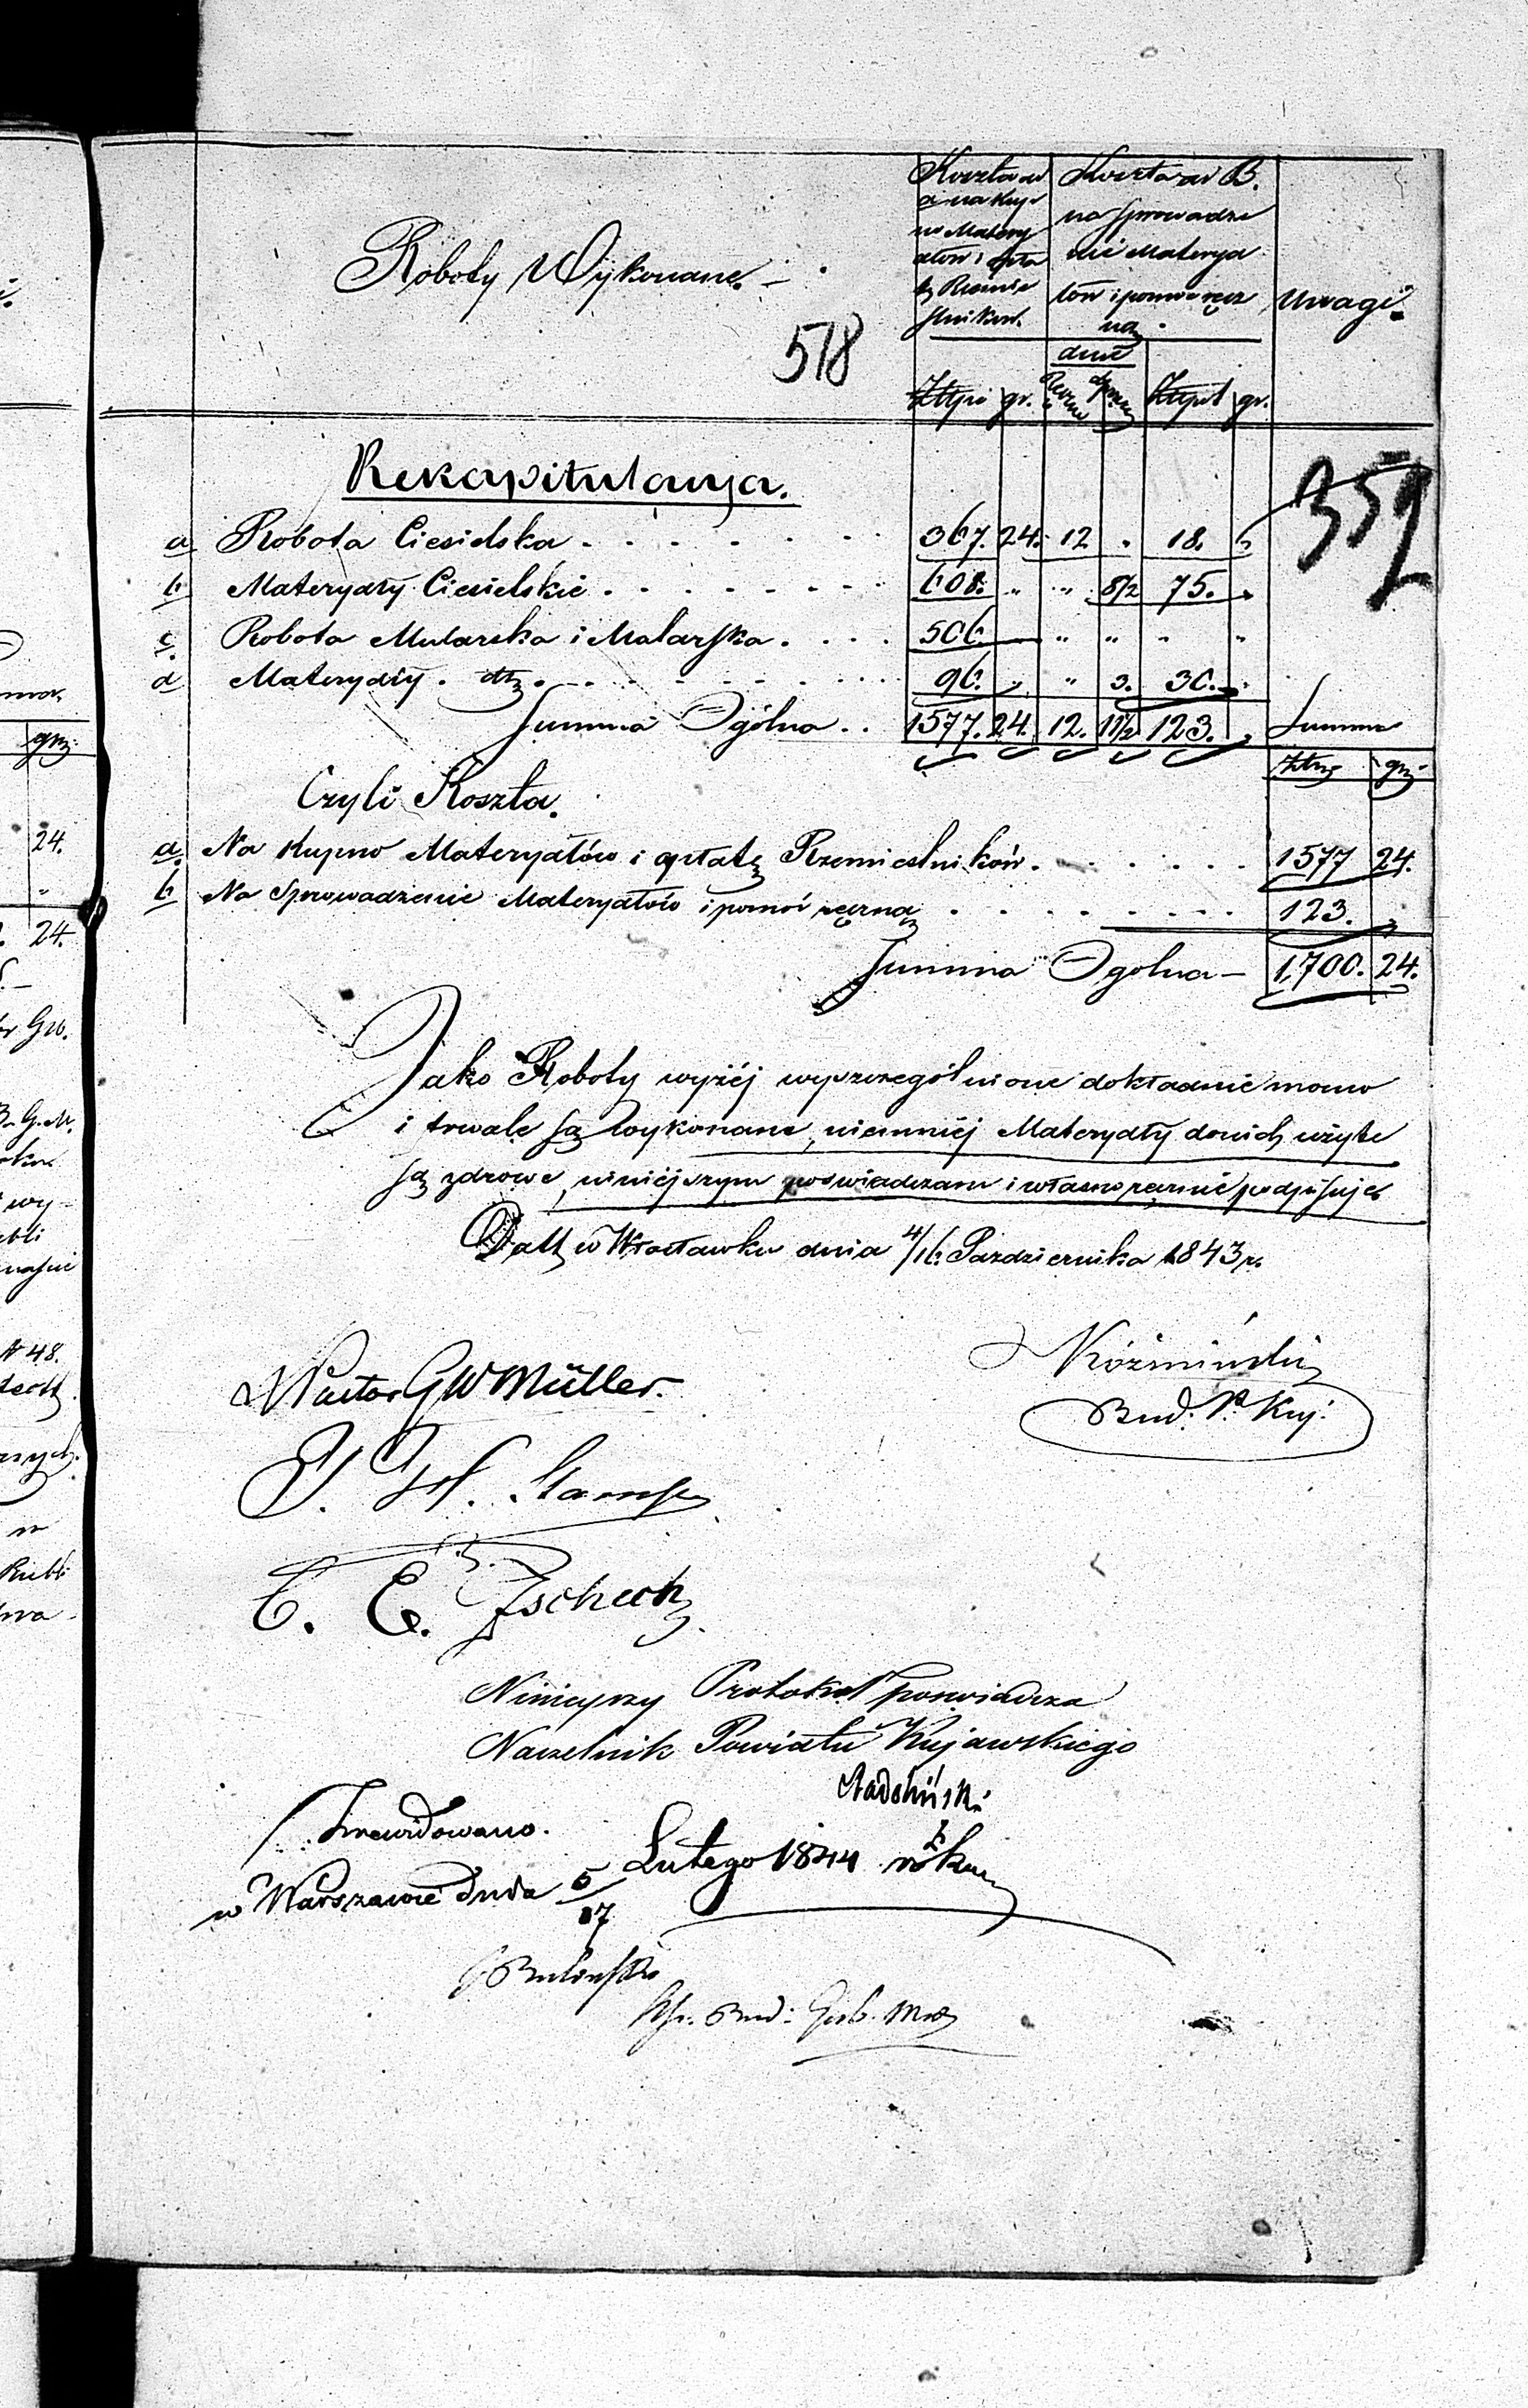 Roboty Wykonane.
518
Koszta ad
a na kup
no Matery
ałów i opła
tę Rzemie
ślników.
Koszta ad B.
na sprowadze
nie Materya
łów i pomoc ręcz
ną.
Uwagi.
dnie
Złtp gr. Ręczne Złtp gr.
359
Rekapitulacya.
a Robota Ciesielska . . . . . . . 367. 24. 12 " 18. "
b. Materyały Ciesielskie . . . . . . . 608. " " 8½ 75. "
c. Robota Mularska i Malarska . . . . 506. — " " " "
d Materyały . dto . . . . . . . . 96. " " 3. 30. "
Summa Ogólna . . 1577. 24. 12. 11½ 123. "
Summa
Złtp gr
Czyli Koszta.
a. Na Kupno Materyałów i opłatę Rzemieślników . . . . . . . 1577 24.
b. Na Sprowadzenie Materyałów i pomoc ręczną . . . . . . . . 123. "
Summa Ogólna — 1,700. 24.
Jako Roboty wyżéj wyszczególnione dokładnie mocno
i trwale są wykonane, niemniéj Materyały do nich użyte
są zdrowe, niniéjszym poświadczam i własnoręcznie podpisuję
Datt w Włocławku dnia 4/16 Października 1843 r.
Koźmiński
Bud. P. Kuj.
Pastor GW Müller.
C. E. Zscheck
Niniejszy Protokół poświadcza
Naczelnik Powiatu Kujawskiego
Zrewidowano.
w Warszawie dnia 5/17 Lutego 1844 roku
Bud: Gub. Maz
24.
"
24.
gr.
N 48.
wy-